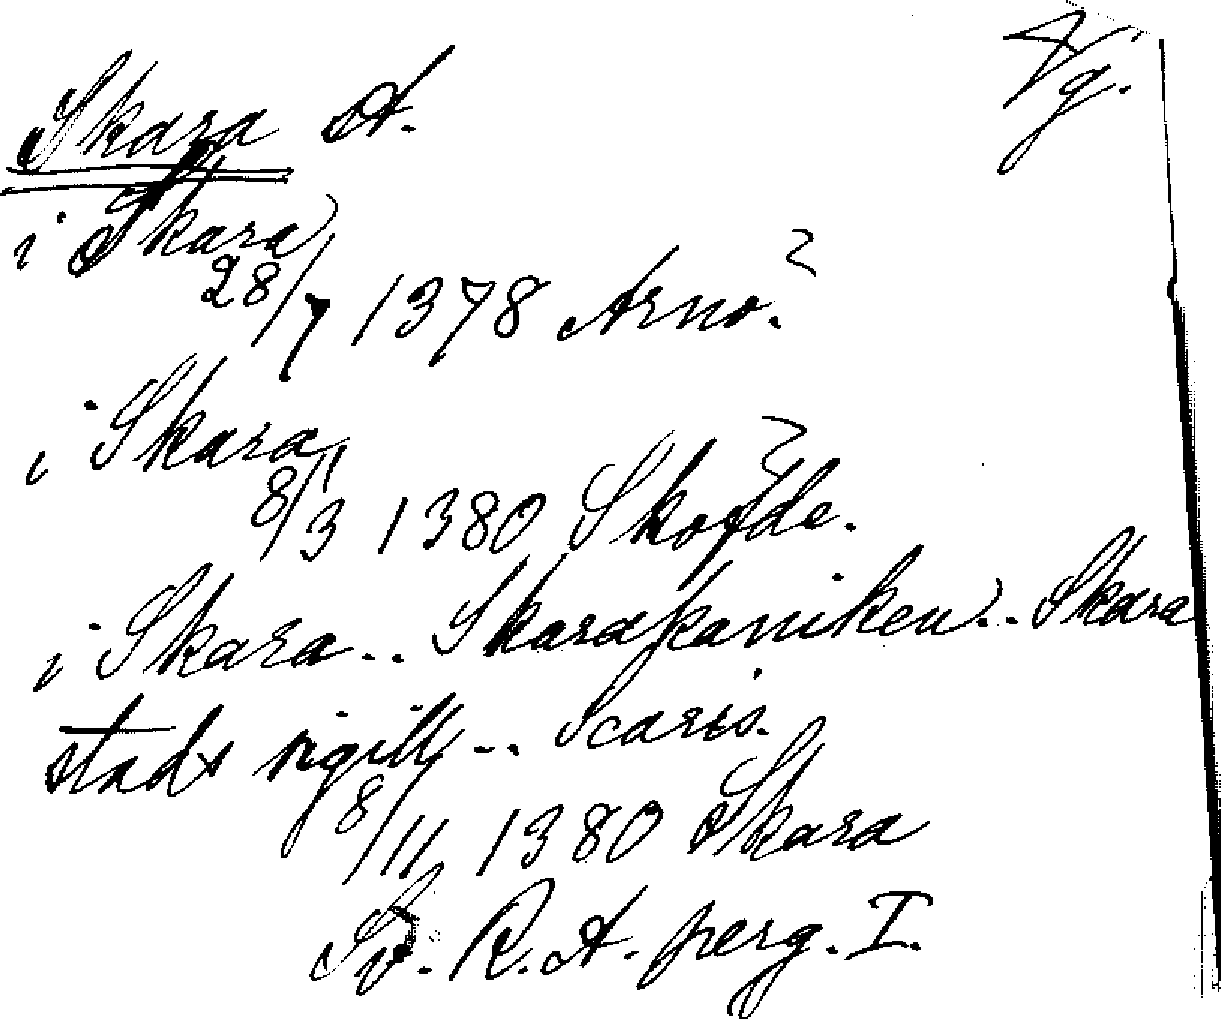 Skara st. Vg.
i Skara
28/7 1378 Arnö.
i Skara
8/3 1380 Sköfde.
i Skara.. Skarakaniken.. Skara
stads sigill.. Scaris.
8/11 1380 Skara
Sv. R. A. perg. I.